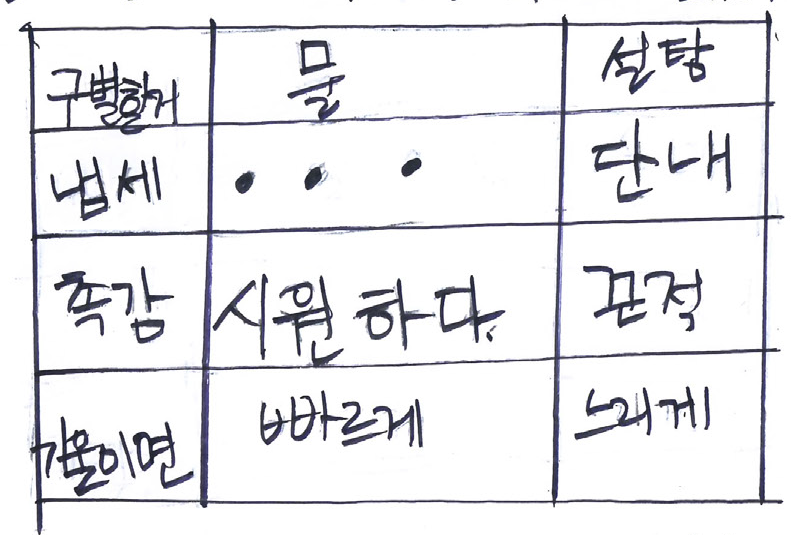 구별할거 물 설탕
냄세 • • • 단내
촉감 시원하다. 끈적
기울이면 빠르게 느리게